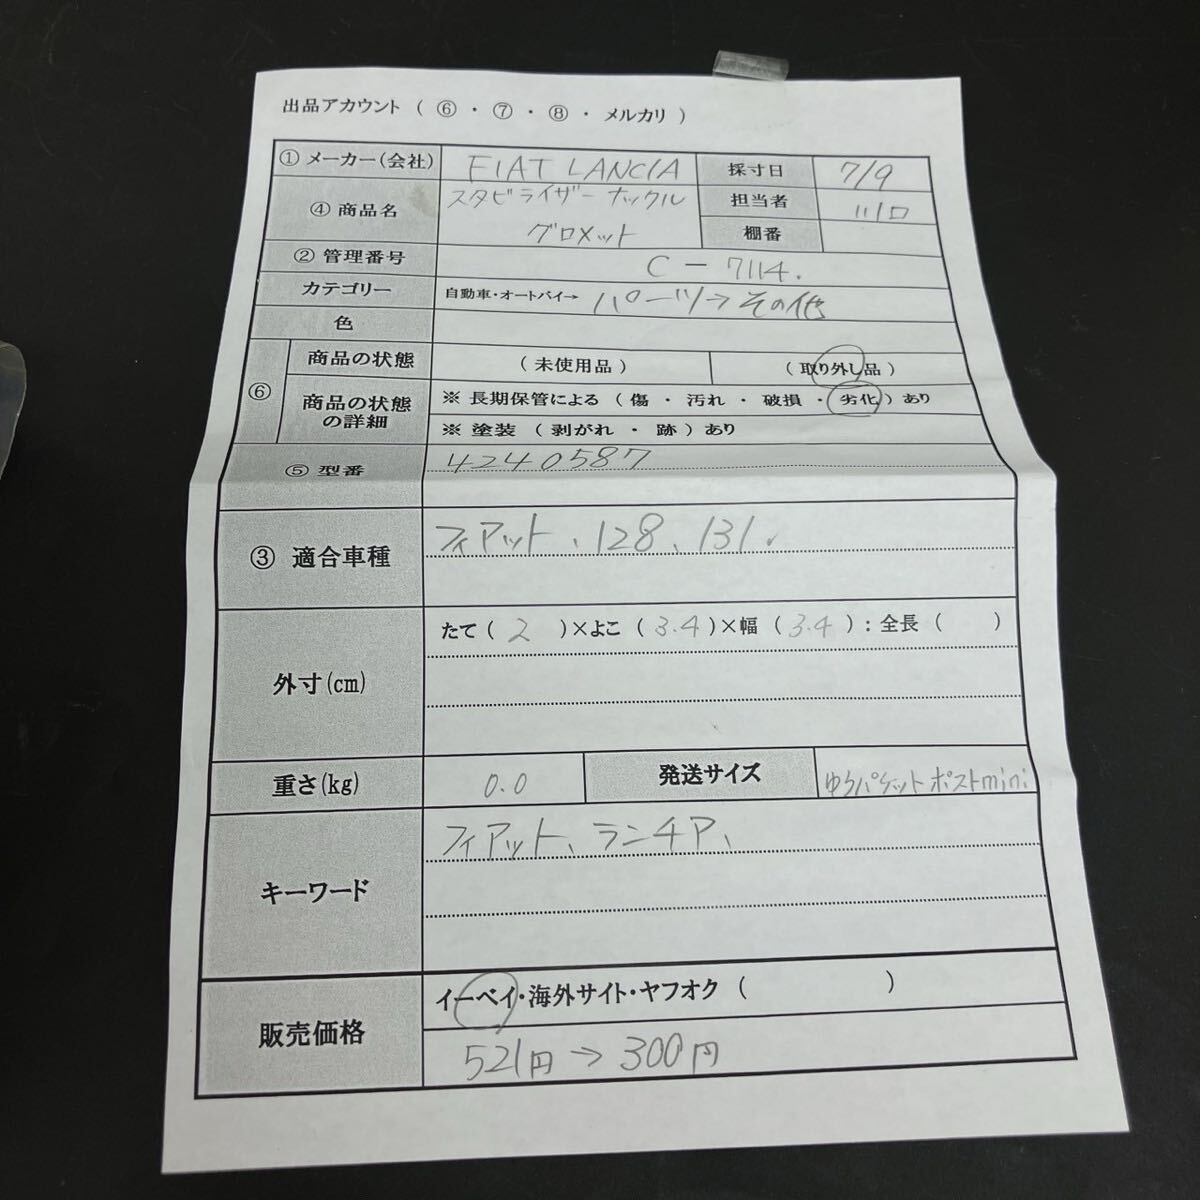 出品アカウント ( ⑥ ・ ⑦ ・ ⑧ ・ メルカリ )
① メーカー(会社) FIAT LANCIA 採寸日 7/9
④ 商品名 スタビライザー ナックル 担当者 川口
グロメット 棚番
② 管理番号 C - 7114.
カテゴリー 自動車・オートバイ→ パーツ→その他
色
⑥ 商品の状態 ( 未使用品 ) ( 取り外し品 )
商品の状態の詳細 ※ 長期保管による ( 傷 ・ 汚れ ・ 破損 ・ 劣化 ) あり
※ 塗装 ( 剥がれ ・ 跡 ) あり
⑤ 型番 4240587
③ 適合車種 フィアット、128、131、
外寸(cm) たて ( 2 ) ×よこ ( 3.4 ) ×幅 ( 3.4 ) : 全長 ( )
重さ(kg) 0.0 発送サイズ ゆうパケットポストmini
キーワード フィアット、ランチア、
販売価格 イーベイ・海外サイト・ヤフオク ( )
521円 → 300円